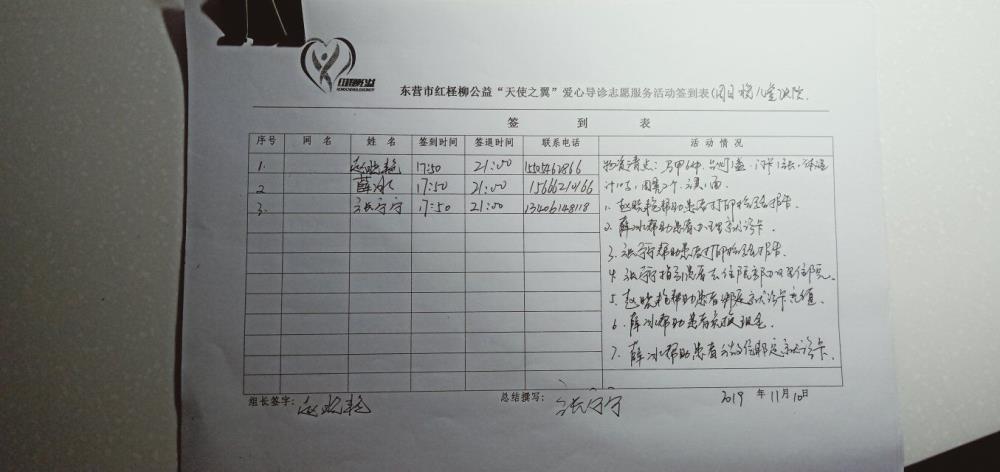 红柽柳公益
东营市红柽柳公益“天使之翼”爱心导诊志愿服务活动签到表(
儿童医院
签 到 表
序号 网 名 姓 名 签到时间 签退时间 联系电话 活 动 情 况
1. 赵晓艳 17:50 21:00 物资清点:马甲6件
2 薛冰 17:50 21:00
3. 张宁宁 17:50 21:00 13406148118
1. 赵晓艳帮助患者打印检验报告.
2. 薛冰帮助患者办理就诊卡.
3. 张宁宁帮助患者打印检验报告.
4. 张宁宁指引患者去住院部办理住院.
5. 赵晓艳帮助患者绑定就诊卡充值.
6. 薛冰帮助患者兑换现金.
7. 薛冰帮助患者微信绑定就诊卡.
组长签字: 赵晓艳 总结撰写: 张宁宁 2019 年 11月 10日